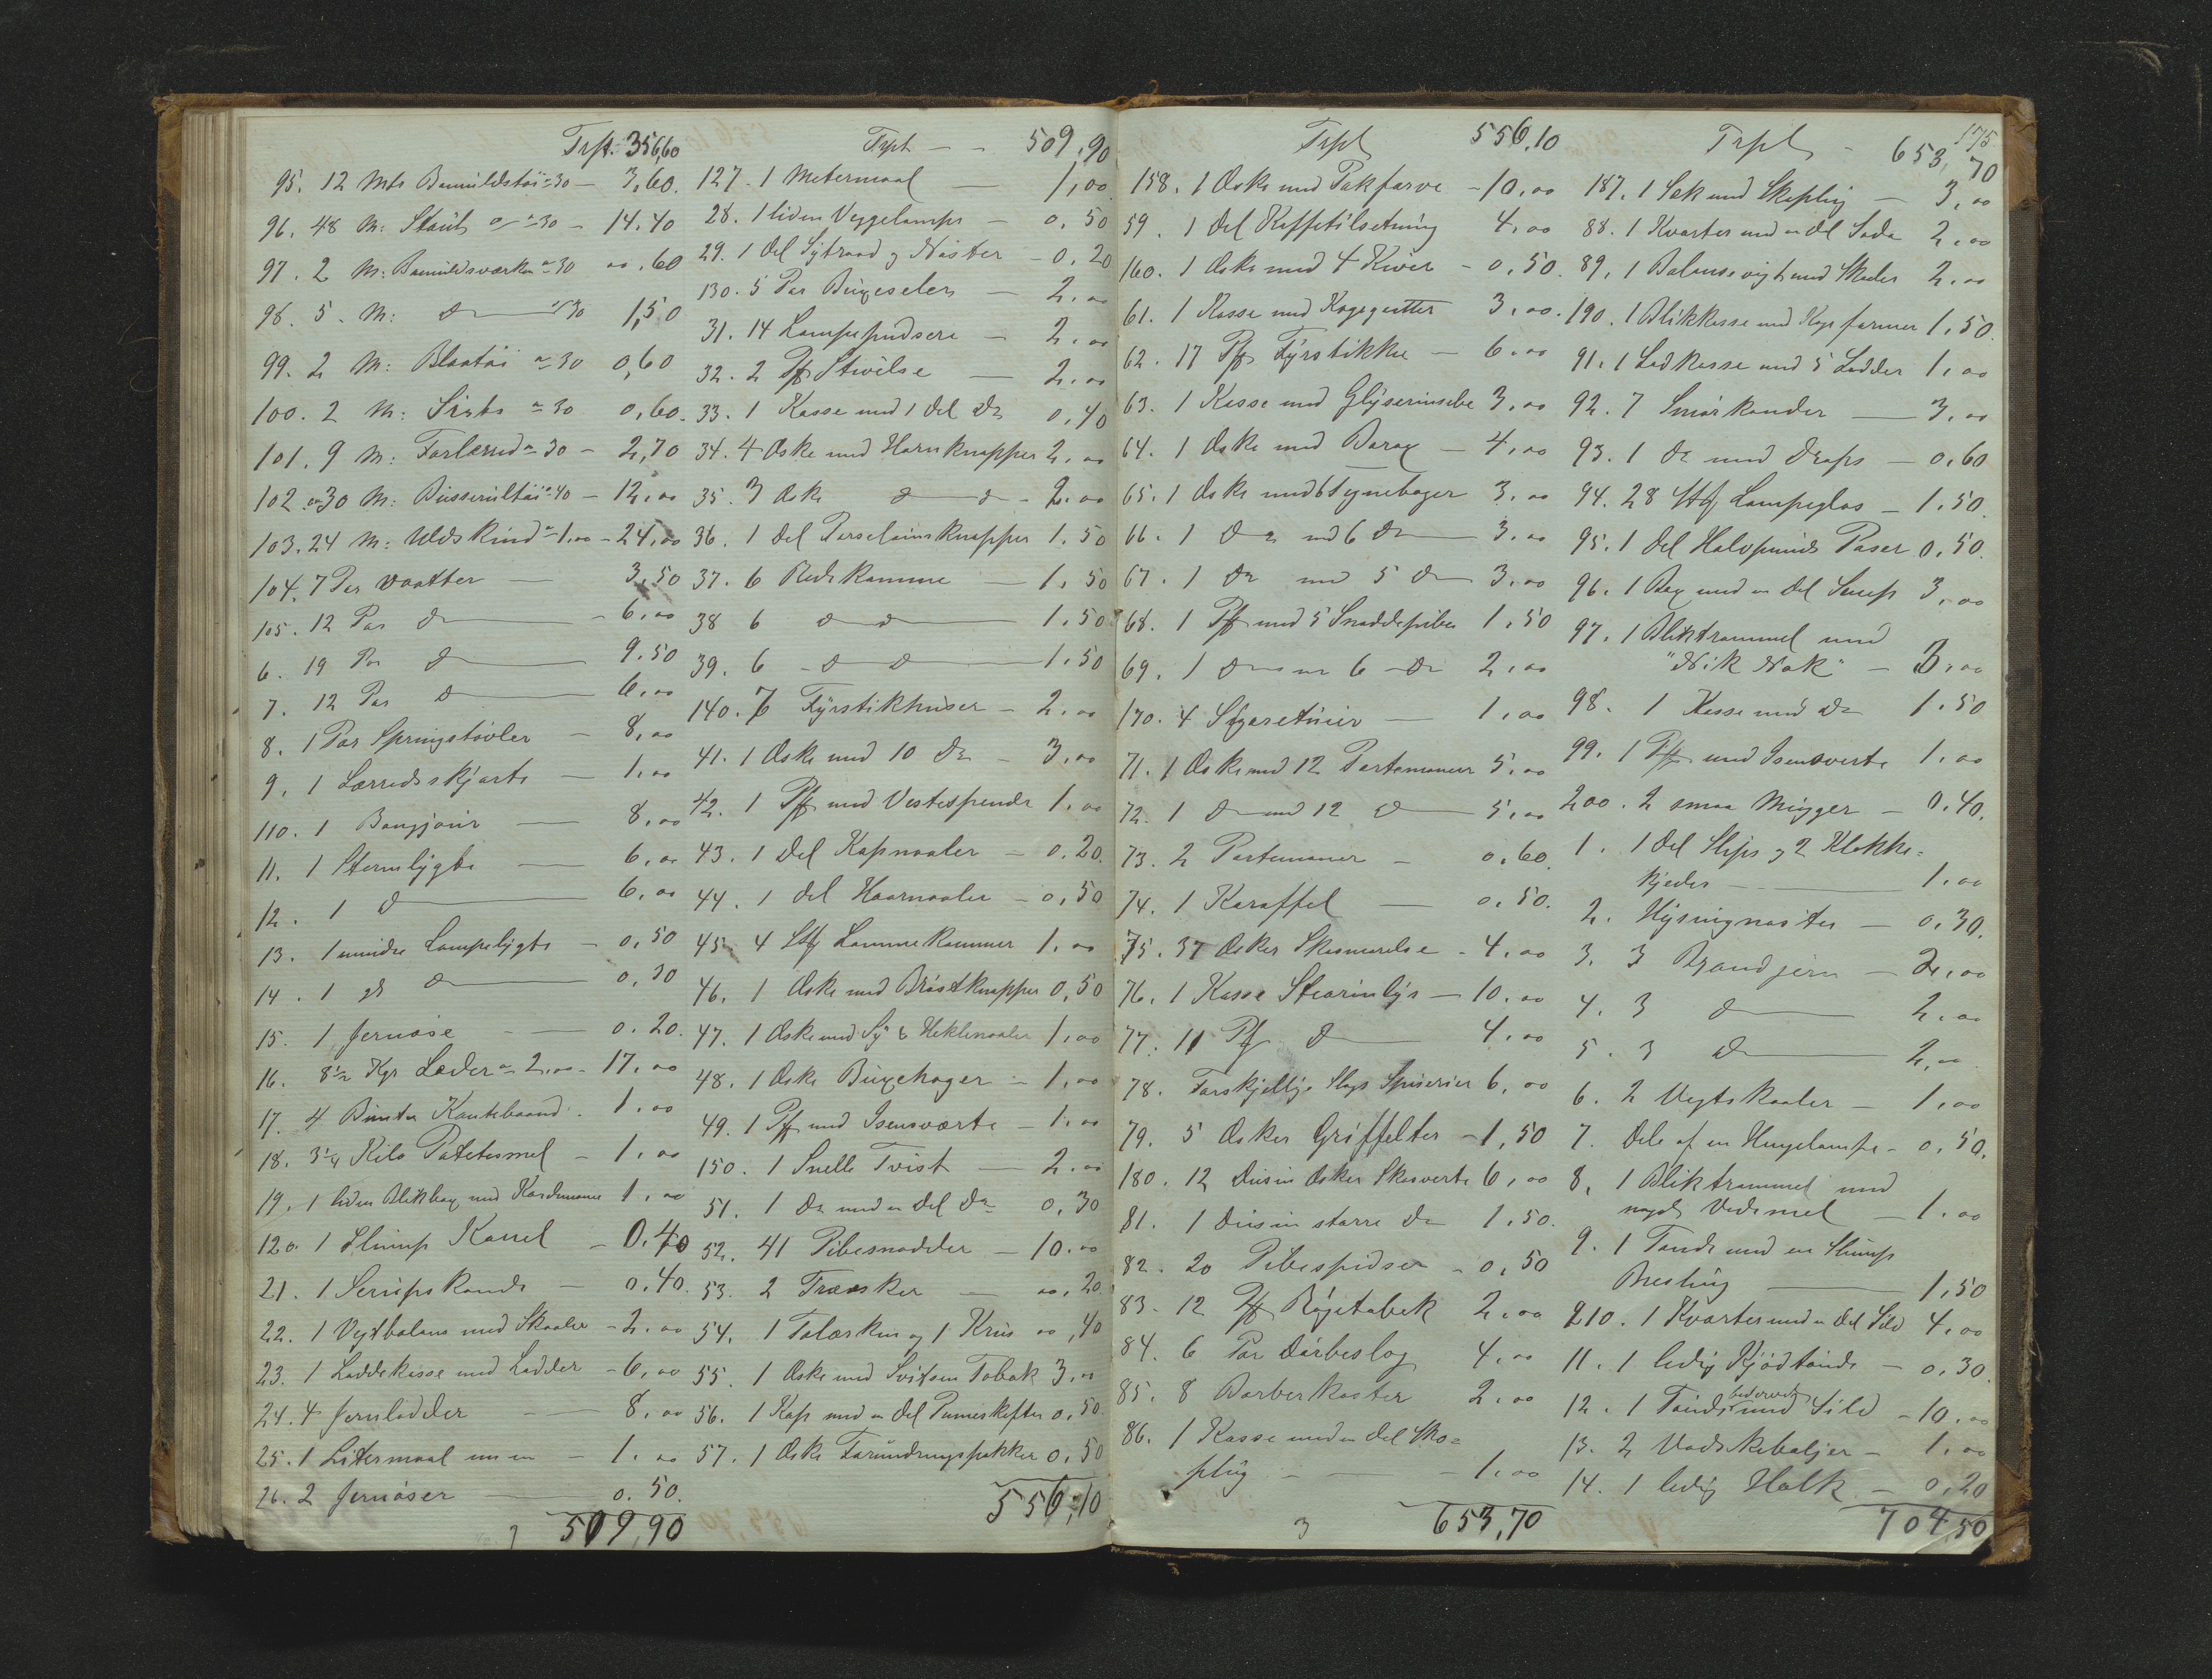 Trspt. 356,60
95. 12 Mtr Bomuldstøi a 30 - 3,60.
96. 48 M: Stouts a 30 - 14,40
97. 2 M: Bomuldsværken a 30 00,60
98. 5. M: Do a 30 1,50
99. 2 M: Blaatøi a 30 0,60
100. 2 M: Sirts a 30 0,60.
101. 9 M: Forlærred a 30 - 2,70
102. 30 M: Busserultøi a 40 - 12,00
103. 24 M: Uldskind a 1,00 - 24,00
104. 7 Par vaatter - 3,50
105. 12 Par Do - 6,00
6. 19 Par Do 9.50
7. 12 Par Do 6,00
8. 1 Par Springstøvler - 8,00
9. 1 Lærredsskjorte - 1,00
110. 1 Bonjour - 8,00
11. 1 Stormlygte - 6,00
12. 1 Do 6,00
13. 1 mindre Lampelygte - 0,50
14. 1 gl Do 0,30
15. 1 Jernøse - 0.20.
16. 8 1/2 Kgr Læder a 2,00 - 17,00
17. 4 Bunter Kantebaand. 1,00
18. 3 1/4 Kilo Potetesmel - 1,00
19. 1 liden Blikbox med Kardemome 1,00
120. 1 Slump Kanel - 0.40
21. 1 Sirupskande - 0,40.
22. 1 Vegtbalans med Skaaler - 2,00
23. 1 Loddekasse med Lodder - 6,00
24. 4 Jernlodder - 8,00
25. 1 Litermaal - 1.00
26. 2 Jernøser 0.50.
509,90
Trspt - - 509,90
127. 1 Metermaal - 1,00
28. 1 liden Veggelampe - 0,50
29. 1 Del Sytraad og Nøster - 0,20
130. 5 Par Buxeseler - 2,00
31. 14 Lampepudsere - 2,00
32. 2 Pk Stivelse - 2,00
33. 1 Kasse med 1 del Do 0,40
34. 4 Æske med Hornknapper 2,00
35. 3 Æske Do Do - 2.00
36. 1 Del Porselainsknapper 1.50
37. 6 Redekamme - 1,50
38 6 Do Do 1.50
39. 6 - Do Do 1.50
140. 7 Fyrstikhuser - 2,00
41. 1 Æske med 10 Do - 3,00
42. 1 Pk med Vestespender 1,00
43. 1 Del Kapnaaler - 0.20.
44. 1 del Haarnaaler - 0,50
45. 4 Stk Lommekammer 1,00
46. 1 Æske med Brøstknapper 0,50
47. 1 Æske med Sy & Heklenaaler 1,00
48. 1 Æske Buxehager - 1,00
49. 1 Pk med Isensværte - 1,00
150. 1 Snelle Tvist - 2.00
51. 1 Do med en Del Do 0,30
52. 41 Pibesnadder - 10.00
53. 2 Træøsker - 00,20.
54. 1 Tolærken og 1 Krus 00,40
55. 1 Æske med Svitsen Tobak 3,00
56. 1 Kop med en Del Penneskefter 0,50.
57. 1 Æske Forundringspakker 0,50
556,10
Trspt 556,10
158. 1 Æske med Pakfarve - 10,00
59. 1 Del Kaffetilsetning 4,00
160. 1 Æske med 4 Kniver - 0,50.
61. 1 Kasse med 3,00.
62. 17 Pk Fyrstikker - 6,00
63. 1 Kasse med Glyserinsebe 3,00
64. 1 Æske med Borax - 4,00
65. 1 Æske med 6 Synebøger 3,00
66. 1 Do md 6 Do 3,00
67. 1 Do md 5 Do 3,00
168. 1 Pk med 5 Snaddepiber 1,50
69. 1 Do m 6 Do 2,00
170. 4 Sigaretuier - 1,00
71. 1 Æske med 12 Portemoneer 5,00
72. 1 Do med 12 Do 5,00
73. 2 Portemoneer - 0,60.
74. 1 Karaffel - 0,50.
75. 37 Æsker Skosmurelse - 4,00
76. 1 Kasse Stearinlys - 10,00
77. 11 Pk Do 4,00
78. Forskjellige Slags Spiserier 6,00
79. 5 Æsker Griffelter - 1,50
180. 12 Dusin Æsker Skosverte 6,00
81. 1 Dusin større Do 1,50.
82. 20 Pibespidser - 0,50
83. 12 Pk Røgetobak 2,00
84. 6 Par Dørbeslag 4,00
85. 8 Barberkoster 2,00
86. 1 Kasse med en del Sko=
plug - 1,00
3 653,70
175
Trspt - 653,70
187. 1 Sæk med Skoplug - 3,00
88. 1 Kvarter med en del Soda 2,00
89. 1 Balansevigt med Skaaler 2,00
190. 1 Blikkasse med Kageformer 1,50.
91. 1 Lodkasse med 5 Lodder 1,00
92. 7 Smørkander - 3,00
93. 1 Do med Drops - 0,60
94. 28 Stk Lampeglas - 1.50.
95. 1 Del Halvpunds Poser 0,50.
96. 1 Box med en Del Senep 3,00
97. 1 Bliktrommel med
"Nik Nak" - 3,00
98. 1 Kasse med Do 1.50
99. 1 Pk med Isensverte 1,00
200. 2 smaa Mugger - 0,40.
1. 1 Del Slips og 2 Klokke=
kjeder - 1,00
2. Hysingnøster - 0,30.
3. 3 Brandjern - 2,00
4. 3 Do 2,00
5. 3 Do 2,00
6. 2 Vegtskaaler - 1,00
7. Dele af en Hengelampe - 0,50.
8. 1 Bliktrommel med
noget Vedemel - 1.00
9. 1 Tønde med en Slump
Bresling 1,50
210. 1 Kvarter med en del Sild 4,00
11. 1 ledig Kjødtønde - 0,30.
12. 1 Tønde med bedervet Sild - 10,00
13. 2 Vadskebaljer - 1,00
14. 1 ledig Holk - 0,20
704,50